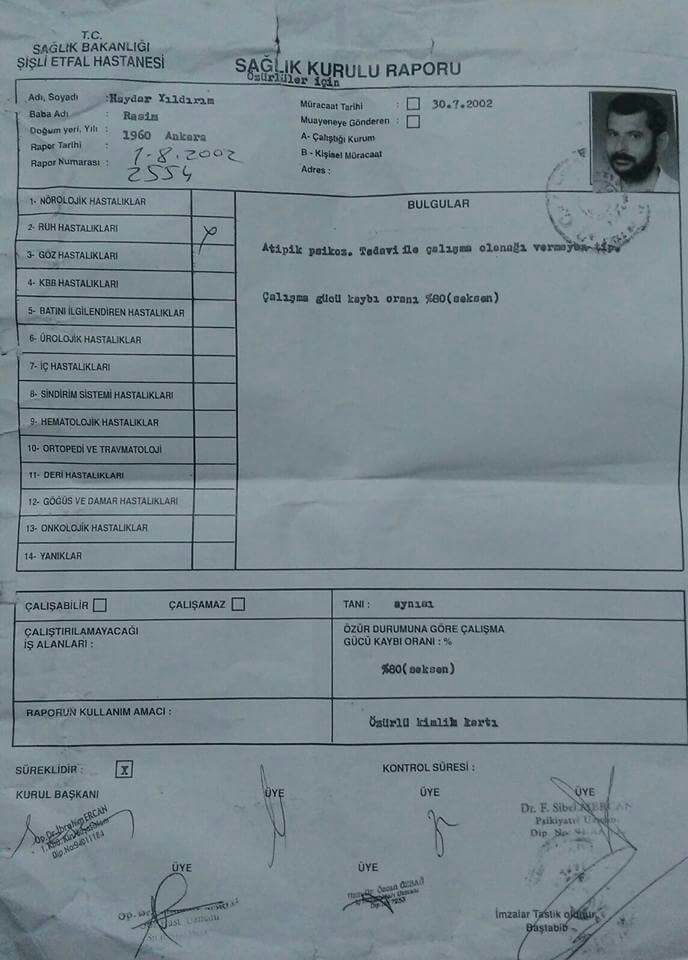 T.C.
SAĞLIK BAKANLIĞI
ŞİŞLİ ETFAL HASTANESİ
SAĞLIK KURULU RAPORU
Özürlüler için
Adı, Soyadı : Haydar Yıldırım
Baba Adı : Rasim
Doğum yeri, Yılı : 1960 Ankara
Rapor Tarihi : 1-8.2002
Rapor Numarası : 2554
Müracaat Tarihi : 30.7.2002
Muayeneye Gönderen :
A- Çalıştığı Kurum
B - Kişisel Müracaat
Adres :
1- NÖROLOJİK HASTALIKLAR
2- RUH HASTALIKLARI
3- GÖZ HASTALIKLARI
4- KBB HASTALIKLARI
5- BATINI İLGİLENDİREN HASTALIKLAR
6- ÜROLOJİK HASTALIKLAR
7- İÇ HASTALIKLARI
8- SİNDİRİM SİSTEMİ HASTALIKLARI
9- HEMATOLOJİK HASTALIKLAR
10- ORTOPEDİ VE TRAVMATOLOJİ
11- DERİ HASTALIKLARI
12- GÖĞÜS VE DAMAR HASTALIKLARI
13- ONKOLOJİK HASTALIKLAR
14- YANIKLAR
BULGULAR
Atipik psikoz. Tedavi ile çalışma olanağı vermeyen tip.
Çalışma gücü kaybı oranı %80(seksen)
ÇALIŞABİLİR
ÇALIŞAMAZ
TANI : aynısı
ÇALIŞTIRILAMAYACAĞI
İŞ ALANLARI :
ÖZÜR DURUMUNA GÖRE ÇALIŞMA
GÜCÜ KAYBI ORANI : %
%80(seksen)
RAPORUN KULLANIM AMACI :
Özürlü kimlik kartı
SÜREKLİDİR : X
KONTROL SÜRESİ :
KURUL BAŞKANI
ÜYE
ÜYE
ÜYE
Op.Dr.İbrahim ERCAN
Dip No:94011164
Dr. F. Sibel MERCAN
Psikiyatri Uzmanı
Dip. No.
ÜYE
ÜYE
Dr. Özcan ÖZBAĞ
İmzalar Tastik olunur.
Baştabib